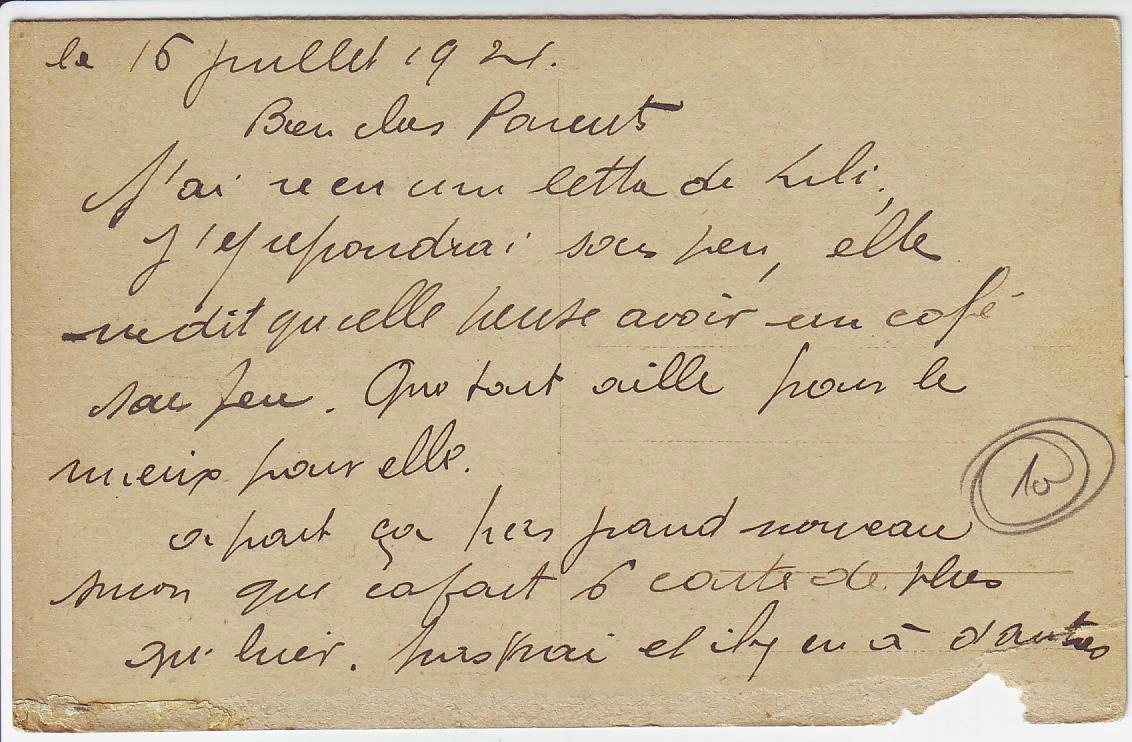 le 16 juillet 1921.
Bien chers Parents
J'ai reçu une lettre de Lili,
j'y repondrai sous peu, elle
me dit qu'elle pense avoir un café
sous peu. Que tout aille pour le
mieux pour elle.
10
a part ça pas grand nouveau
sinon que ca fait 6 carte de plus
qu'hier. pas vrai et il y en à d'autres